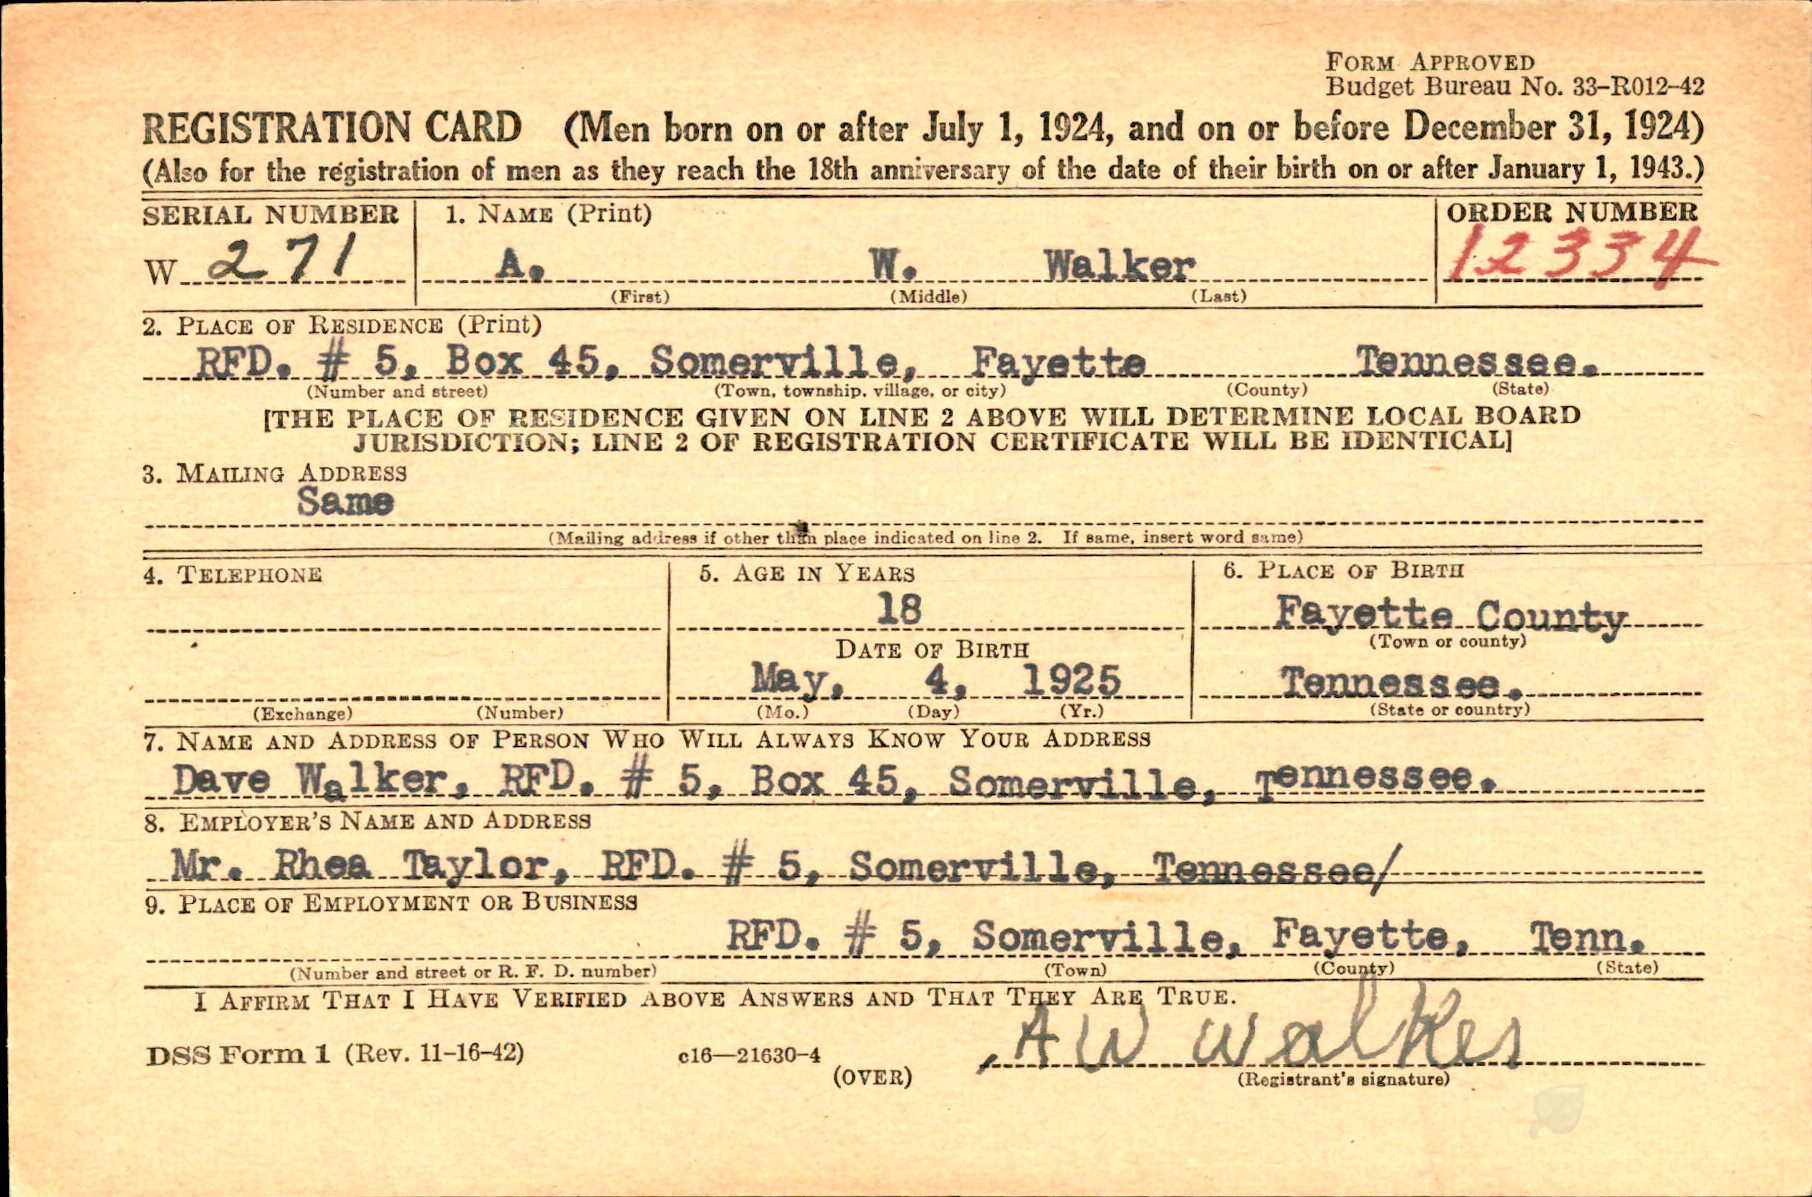 FORM APPROVED
Budget Bureau No. 33–R012–42
REGISTRATION CARD (Men born on or after July 1, 1924, and on or before December 31, 1924)
(Also for the registration of men as they reach the 18th anniversary of the date of their birth on or after January 1, 1943.)
SERIAL NUMBER 1. NAME (Print) ORDER NUMBER
W 271 A. W. Walker 12334
(First) (Middle) (Last)
2. PLACE OF RESIDENCE (Print)
RFD. # 5, Box 45, Somerville, Fayette Tennessee.
(Number and street) (Town, township, village, or city) (County) (State)
[THE PLACE OF RESIDENCE GIVEN ON LINE 2 ABOVE WILL DETERMINE LOCAL BOARD
JURISDICTION; LINE 2 OF REGISTRATION CERTIFICATE WILL BE IDENTICAL]
3. MAILING ADDRESS
Same
(Mailing address if other than place indicated on line 2. If same, insert word same)
4. TELEPHONE 5. AGE IN YEARS 6. PLACE OF BIRTH
18 Fayette County
DATE OF BIRTH (Town or county)
May, 4, 1925 Tennessee.
(Exchange) (Number) (Mo.) (Day) (Yr.) (State or country)
7. NAME AND ADDRESS OF PERSON WHO WILL ALWAYS KNOW YOUR ADDRESS
Dave Walker, RFD. # 5, Box 45, Somerville, Tennessee.
8. EMPLOYER'S NAME AND ADDRESS
Mr. Rhea Taylor, RFD. # 5, Somerville, Tennessee/
9. PLACE OF EMPLOYMENT OR BUSINESS
RFD. # 5, Somerville, Fayette, Tenn.
(Number and street or R. F. D. number) (Town) (County) (State)
I AFFIRM THAT I HAVE VERIFIED ABOVE ANSWERS AND THAT THEY ARE TRUE.
A W Walker
DSS Form 1 (Rev. 11–16–42) c16—21630-4
(OVER) (Registrant's signature)